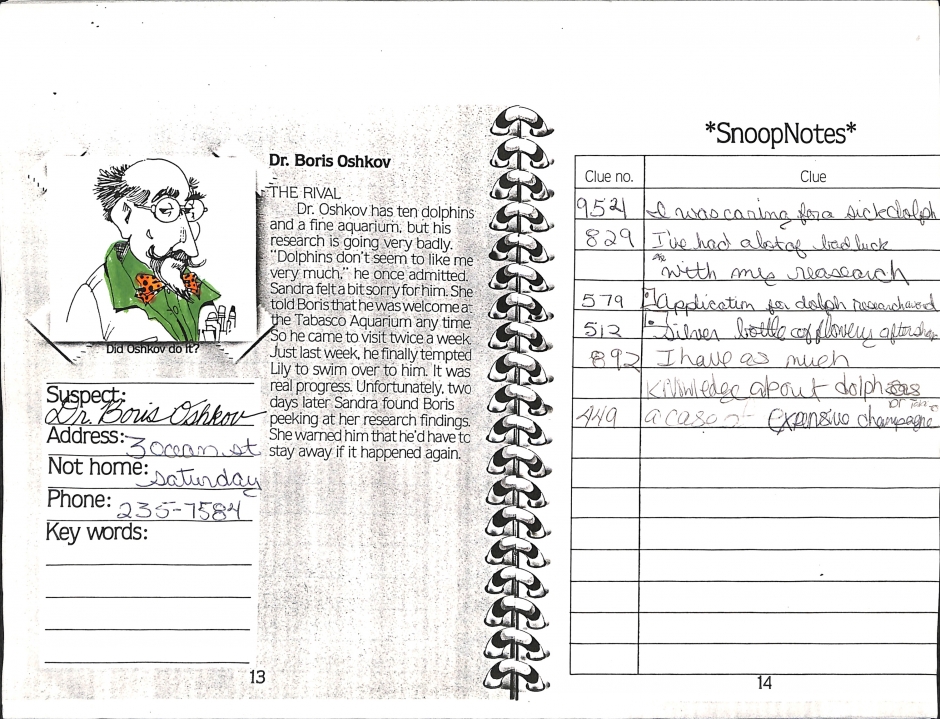 Dr. Boris Oshkov
THE RIVAL
Dr. Oshkov has ten dolphins
and a fine aquarium, but his
research is going very badly.
"Dolphins don't seem to like me
very much," he once admitted.
Sandra felt a bit sorry for him. She
told Boris that he was welcome at
the Tabasco Aquarium any time.
So he came to visit twice a week.
Just last week, he finally tempted
Lily to swim over to him. It was
real progress. Unfortunately, two
days later Sandra found Boris
peeking at her research findings.
She warned him that he'd have to
stay away if it happened again.
Did Oshkov do it?
Suspect:
Dr. Boris Oshkov
Address: 3 ocean st
Not home: saturday
Phone: 235-7584
Key words:
13
*SnoopNotes*
Clue no. Clue
9521 I was caring for a sick dolph
829 I've had a lot of bad luck
with my reasearch
579 Application for dolph
512 Silver bottle of flowery aftersha
892 I have as much
knowledge about
449 a case expensive champagne
14